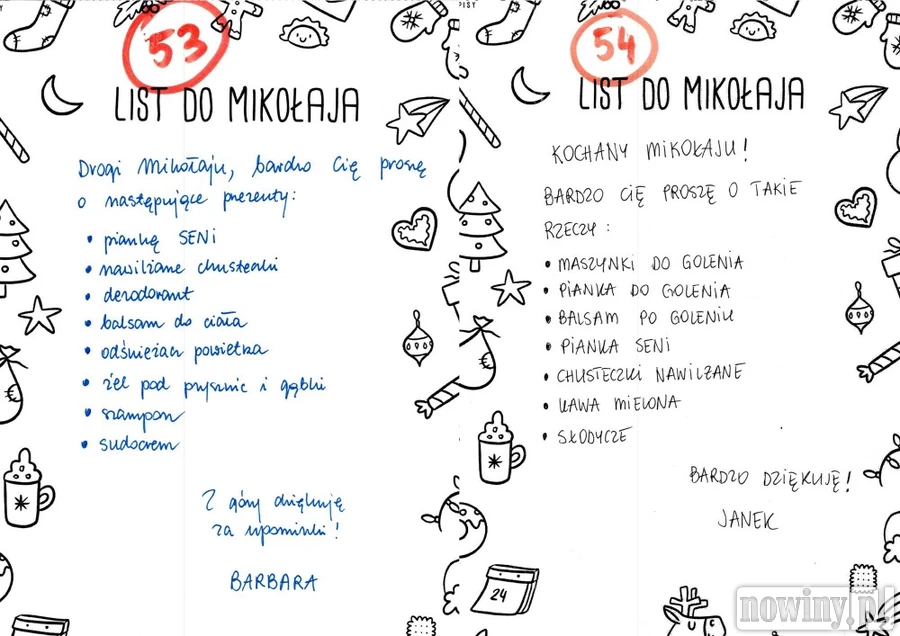 53
LIST DO MIKOŁAJA
Drogi Mikołaju, bardzo Cię proszę
o następujące prezenty:
• piankę SENI
• nawilżane chusteczki
• dezodorant
• balsam do ciała
• odświeżacz powietrza
• żel pod prysznic i gąbki
• szampon
• sudocrem
Z góry dziękuję
za upominki!
BARBARA
54
LIST DO MIKOŁAJA
KOCHANY MIKOŁAJU!
BARDZO CIĘ PROSZĘ O TAKIE
RZECZY:
• MASZYNKI DO GOLENIA
• PIANKA DO GOLENIA
• BALSAM PO GOLENIU
• PIANKA SENI
• CHUSTECZKI NAWILŻANE
• KAWA MIELONA
• SŁODYCZE
BARDZO DZIĘKUJĘ!
JANEK
24
nowiny.pl